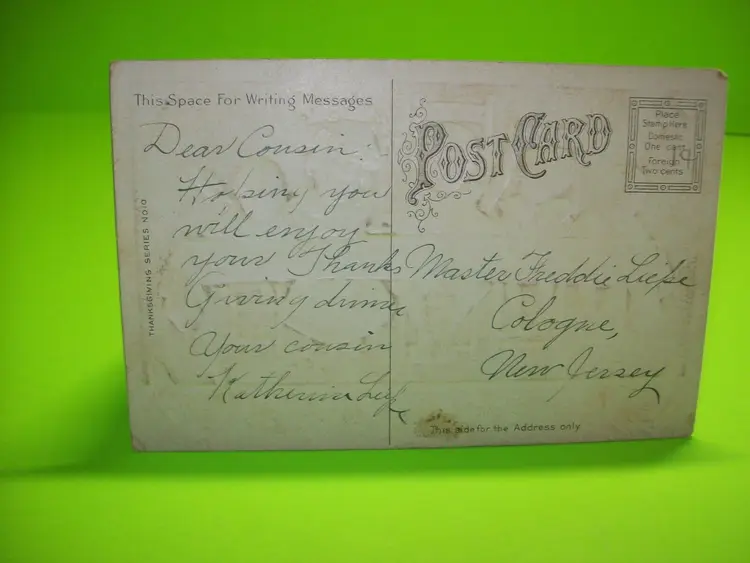 This Space For Writing Messages
Dear Cousin:
Hopsing you
will enjoy
your Thanks
Giving dinner
Your cousin
Katherine
THANKSGIVING SERIES NO10
POST CARD
Place
Stamp Here
Domestic
One cent
Foreign
Two cents
Master Freddie Liepe
Cologne,
New Jersey
This side for the Address only